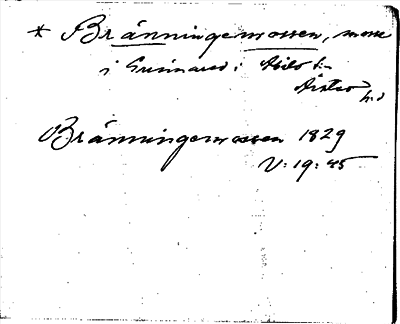 * Bränningemossen, mosse
i Grimared i Abild s:n
Årstad h:d
Bränningemossen 1829
V: 19: 45